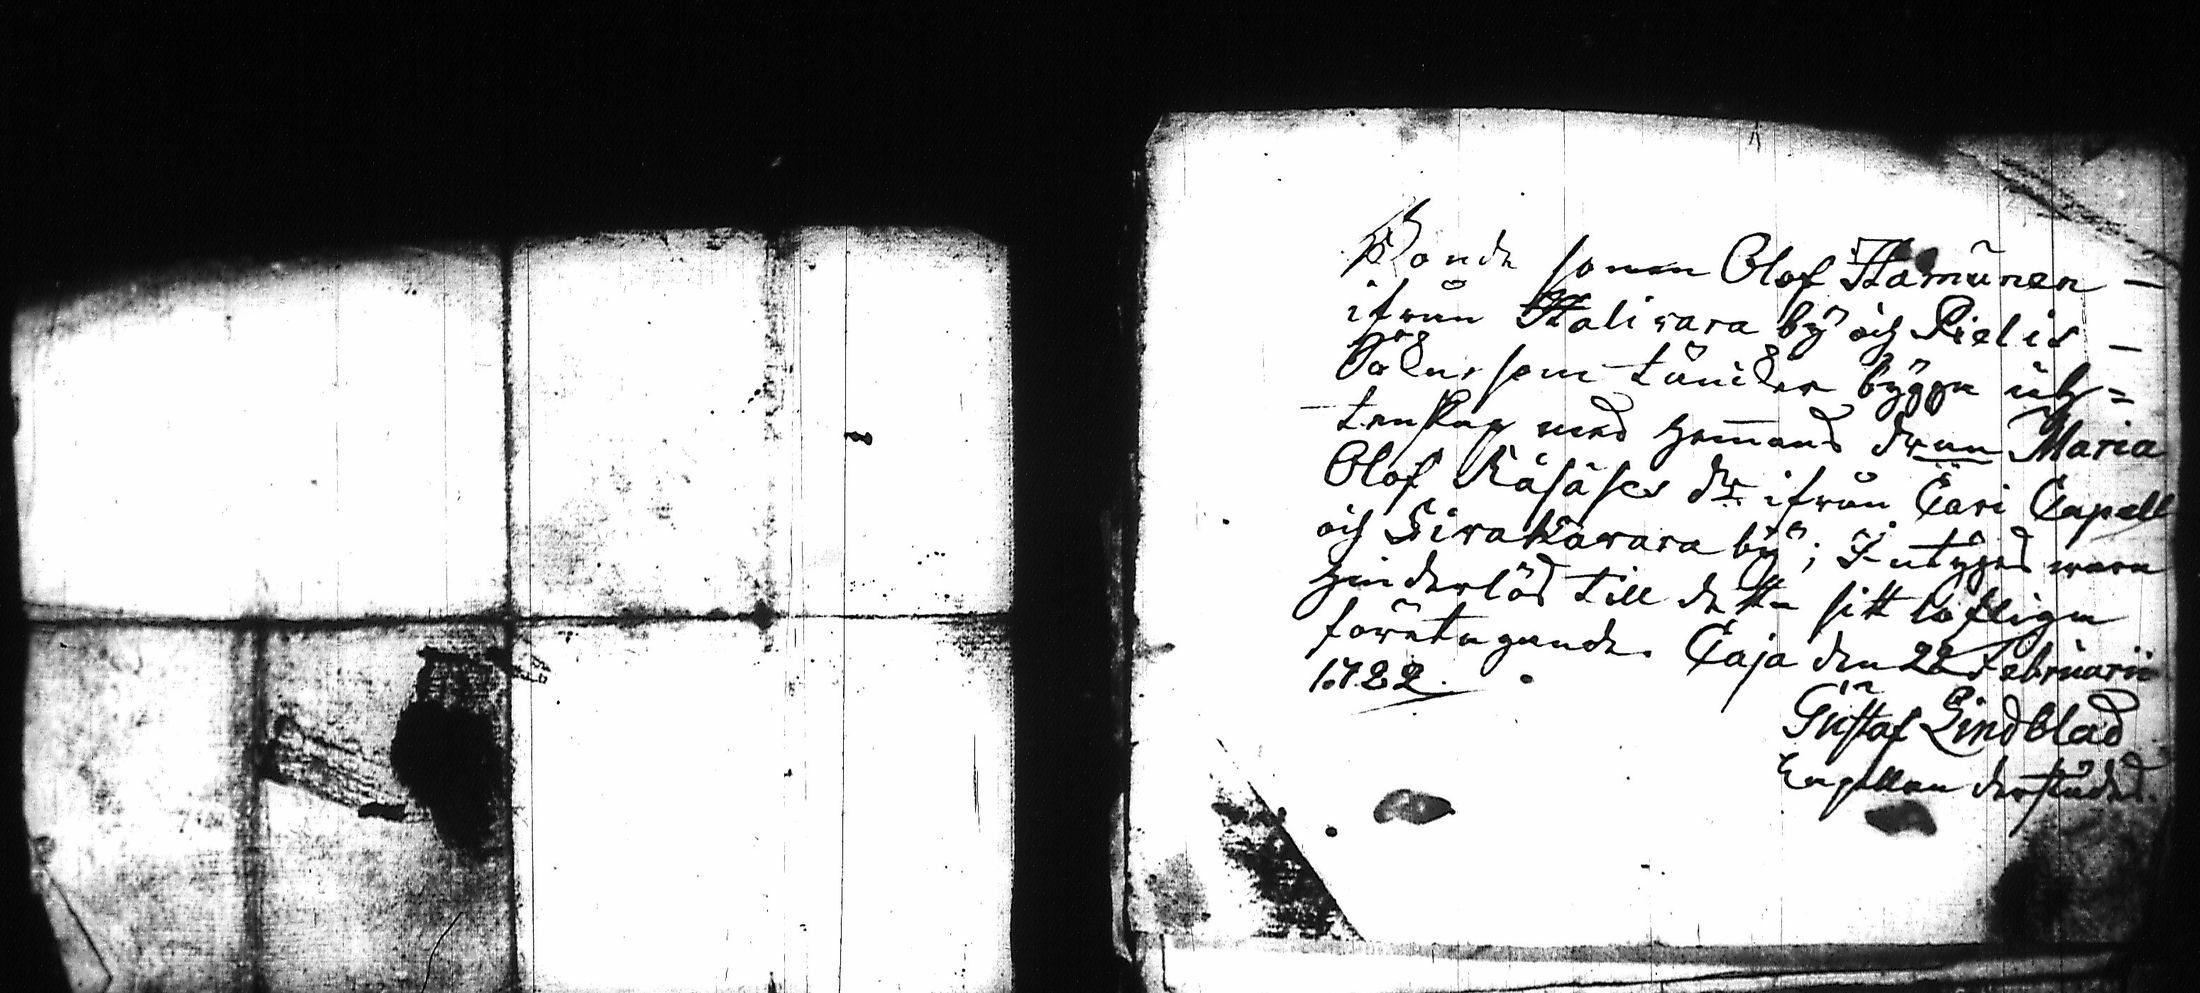 Bonde sonen Olof Hamünen —
ifrån Halivara bÿ och Pielis —
Sokn, som täncker bÿgga äch=
tenskap med hemmans dran Maria
Olof Räsäses dr ifrån Cari Capell
och Sivakavara bÿ; Intÿgas wara
hinderlös till detta sitt lofliga
företagande. Caja den 22 Februarii
1722.
Gustaf Lindblad
Capellan derstädes.